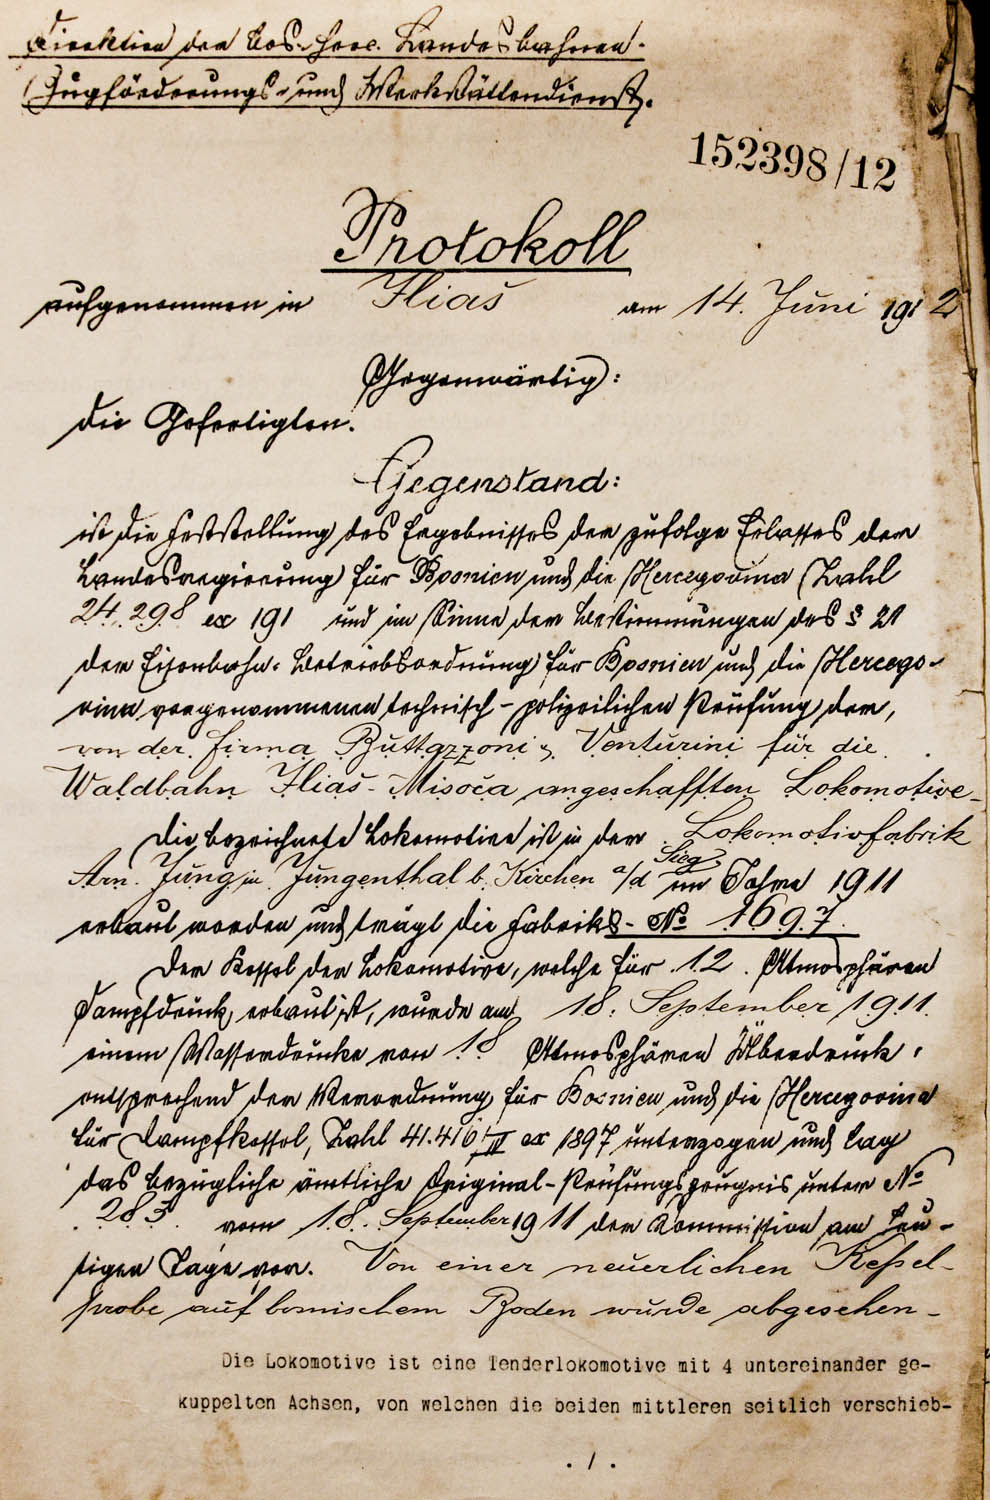 Direktion der bos.-herc. Landesbahnen.
Zugförderungs- und Werkstättendienst.
152398/12
Protokoll
aufgenommen in Ilias̆ am 14. Juni 1912
Gegenwärtig:
die Gefertigten.
Gegenstand:
ist die Feststellung des Ergebnisses der zufolge Erlasses der
Landesregierung für Bosnien und die Hercegovina Zahl
24.298 ex 191 und im Sinne der Bestimmungen des § 21
der Eisenbahn-Betriebsordnung für Bosnien und die Hercego-
vina vorgenommenen technisch-polizeilichen Prüfung der,
von der Firma Buttazzoni & Venturini für die
Waldbahn Ilias̆-Misoc̆a angeschafften Lokomotive-
Die bezeichnete Lokomotive ist in der Lokomotivfabrik
Arn. Jung in Jungenthal b. Kirchen a/d Sieg im Jahre 1911
erbaut worden und trägt die Fabriks-No 1697.
Der Kessel der Lokomotive, welche für 12. Atmosphären
Dampfdruck erbaut ist, wurde am 18. September 1911.
einem Wasserdrucke von 18 Atmosphären Überdruck,
entsprechend der Verordnung für Bosnien und die Hercegovina
für Dampfkessel, Zahl 41.416/III ex 1897 unterzogen und lag
das bezügliche ämtliche Original-Prüfungszeugnis unter No
283 vom 18. September 1911 der Kommission am heu-
tigen Tage vor. Von einer neuerlichen Keßel-
probe auf bornischem Boden wurde abgesehen-
Die Lokomotive ist eine Tenderlokomotive mit 4 untereinander ge-
kuppelten Achsen, von welchen die beiden mittleren seitlich verschieb-
. 1 .